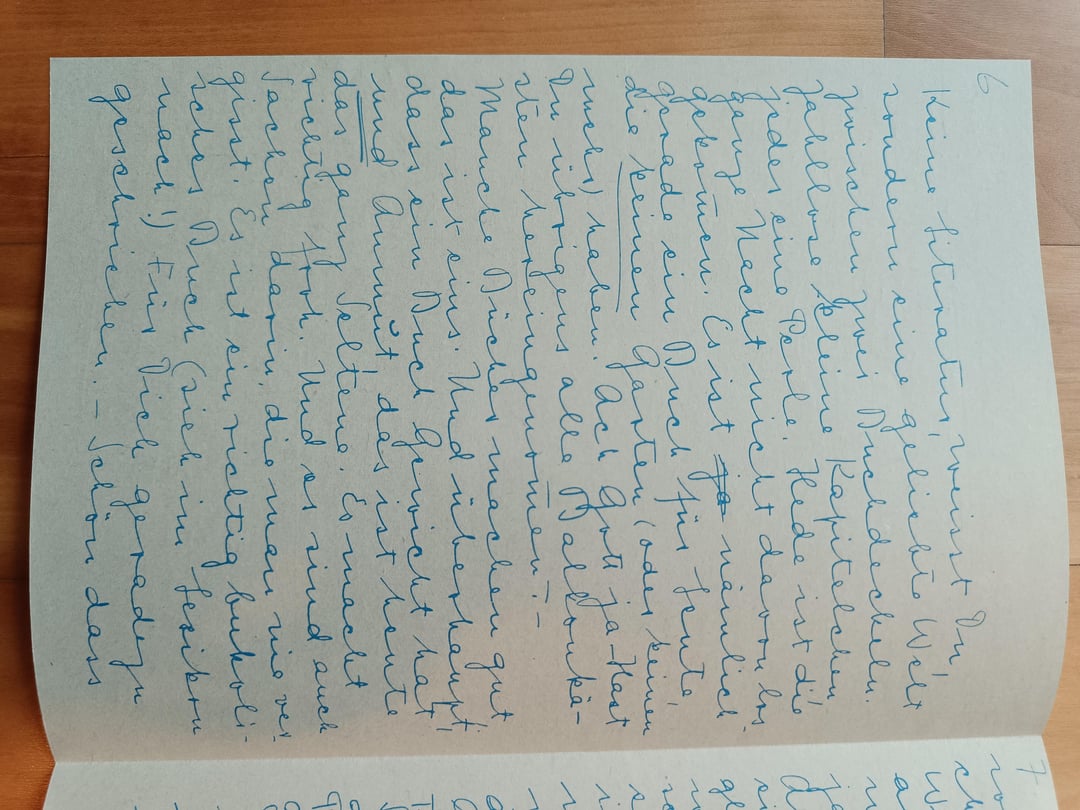 6
Keine Literatur, weisst Du,
sondern eine gelebte Welt
zwischen zwei Buchdeckeln.
Zahllose kleine Kapitelchen,
jedes eine Perle. Hede ist die
ganze Nacht nicht davon los
gekommen. Es ist ja nämlich
gerade ein Buch für Leute,
die keinen Garten (oder keinen
mehr) haben. Ach Gott ja – Hast
Du übrigens alle Balkonkä-
sten hereingenommen? –
Manche Bücher machen gut
das ist eins. Und überhaupt:
dass ein Buch Gewicht hat
und Anmut, das ist heute
das ganz Seltene. Es macht
richtig froh. Und es sind auch
Sachen darin, die man nie ver-
gisst. Es ist ein richtig bukoli-
sches Buch (sieh im Lexikon
nach!) Für Dich geradezu
geschrieben. – Schön dass
7